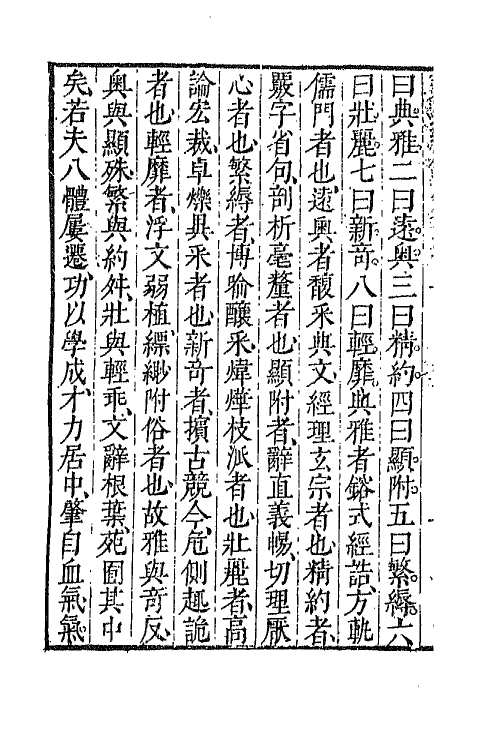 曰典雅二曰遠奧三曰精約四曰顯附五曰繁縟六
曰壯麗七曰新奇八曰輕靡典雅者鎔式經誥方軌
儒門者也遠奧者馥采典文經理玄宗者也精約者
覈字省句剖析毫釐者也顯附者辭直義暢切理厭
心者也繁縟者博喻醲采煒燁枝派者也壯麗者高
論宏裁卓爍異采者也新奇者擯古競今危側趣詭
者也輕靡者浮文弱植縹緲附俗者也故雅與奇反
奧與顯殊繁與約舛壯與輕乖文辭根葉苑囿其中
矣若夫八體屢遷功以學成才力居中肇自血氣氣